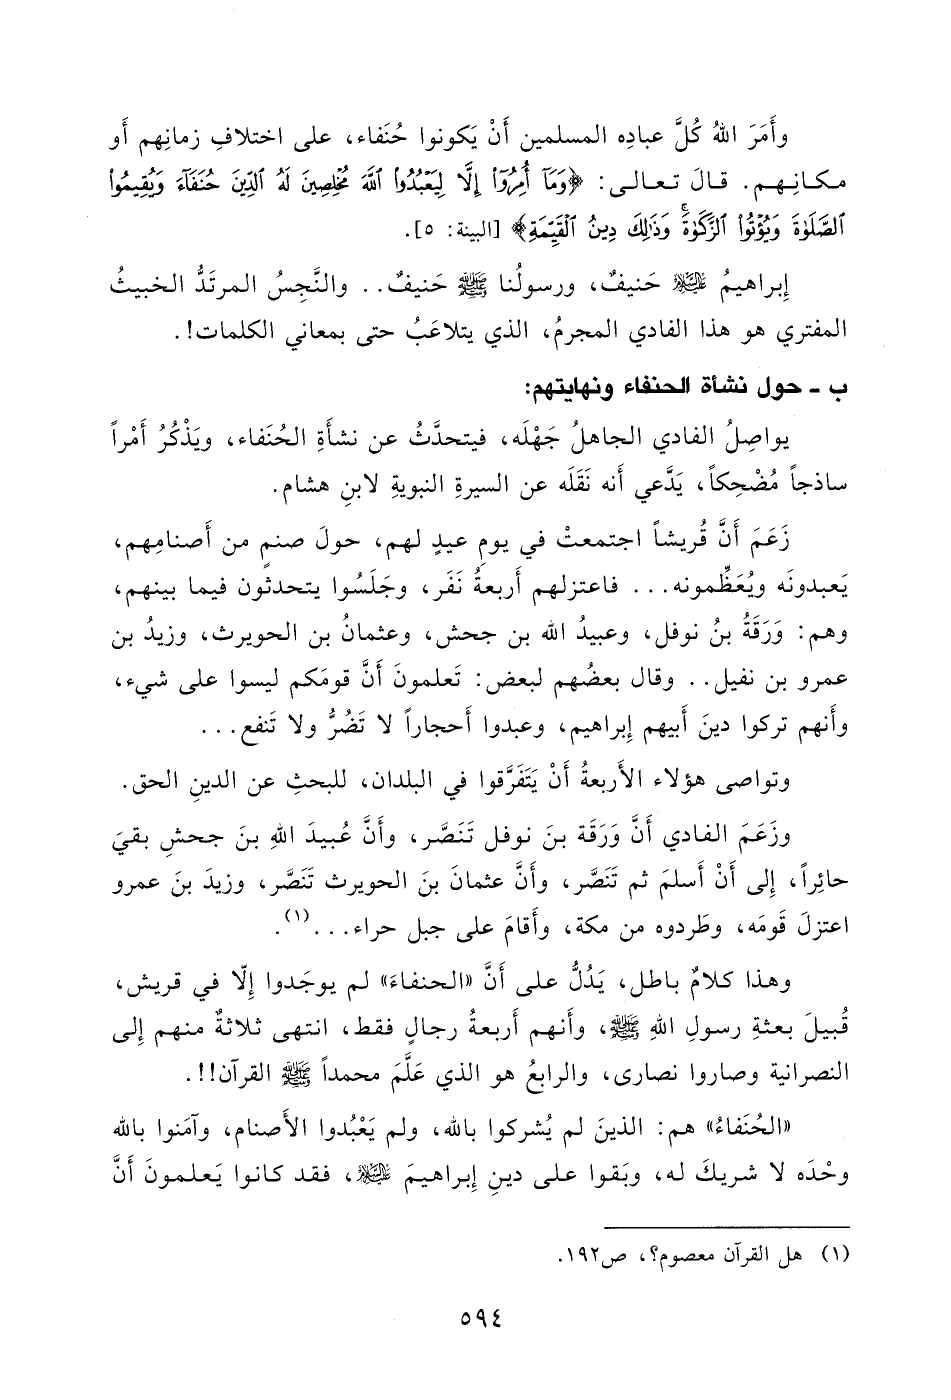 وأَمَرَ اللهُ كُلَّ عباده المسلمين أَنْ يَكونوا حُنَفاء، على اختلافِ زمانِهم أَو
مكانِهم. قالَ تعالى: ﴿وَمَآ أُمِرُوٓا۟ إِلَّا لِيَعْبُدُوا۟ ٱللَّهَ مُخْلِصِينَ لَهُ ٱلدِّينَ حُنَفَآءَ وَيُقِيمُوا۟
ٱلصَّلَوٰةَ وَيُؤْتُوا۟ ٱلزَّكَوٰةَ ۚ وَذَٰلِكَ دِينُ ٱلْقَيِّمَةِ﴾ [البينة: ٥].
إِبراهيمُ عليه السلام حَنيفٌ، ورسولُنا ﷺ حَنيفٌ.. والنَّجِسُ المرتَدُّ الخبيثُ
المفتري هو هذا الفادي المجرمُ، الذي يتلاعَبُ حتى بمعاني الكلمات!.
ب ـ حول نشأة الحنفاء ونهايتهم:
يواصِلُ الفادي الجاهلُ جَهْلَه، فيتحدَّثُ عن نشأَةِ الحُنَفاء، ويَذْكُرُ أَمْراً
ساذجاً مُضْحِكاً، يَدَّعي أَنه نَقَلَه عن السيرةِ النبويةِ لابنِ هشام.
زَعَمَ أَنَّ قُريشاً اجتمعتْ في يومِ عيدٍ لهم، حولَ صنمٍ من أَصنامِهم،
يَعبدونَه ويُعَظِّمونه... فاعتزلهم أَربعةُ نَفَر، وجَلَسُوا يتحدثون فيما بينهم،
وهم: وَرَقَةُ بنُ نوفل، وعبيدُ الله بن جحش، وعثمانُ بن الحويرث، وزيدُ بن
عمرو بن نفيل.. وقال بعضُهم لبعض: تَعلمونَ أَنَّ قومَكم ليسوا على شيء،
وأَنهم تركوا دينَ أَبيهم إِبراهيم، وعبدوا أَحجاراً لا تَضُرُّ ولا تَنفع...
وتواصى هؤلاء الأَربعةُ أَنْ يَتَفَرَّقوا في البلدان، للبحثِ عن الدينِ الحق.
وزَعَمَ الفادي أَنَّ وَرَقَة بنَ نوفل تَنَصَّر، وأَنَّ عُبيدَ اللهِ بنَ جحشِ بقيَ
حائِراً، إِلى أَنْ أَسلمَ ثم تَنَصَّر، وأَنَّ عثمانَ بنَ الحويرث تَنَصَّر، وزيدَ بنَ عمرو
اعتزلَ قَومَه، وطَردوه من مكة، وأَقامَ على جبل حراء...(١).
وهذا كلامٌ باطل، يَدُلُّ على أَنَّ «الحنفاءَ» لم يوجَدوا إِلّا في قريش،
قُبيلَ بعثةِ رسولِ اللهِ ﷺ، وأَنهم أَربعةُ رجالٍ فقط، انتهى ثلاثةٌ منهم إِلى
النصرانية وصاروا نصارى، والرابعُ هو الذي عَلَّمَ محمداً ﷺ القرآن!!.
«الحُنَفاءُ» هم: الذينَ لم يُشركوا بالله، ولم يَعْبُدوا الأَصنام، وآمَنوا بالله
وحْدَه لا شريكَ له، وبَقوا على دينِ إِبراهيمَ عليه السلام، فقد كانوا يَعلمونَ أَنَّ
(١) هل القرآن معصوم؟، ص١٩٢.
٥٩٤